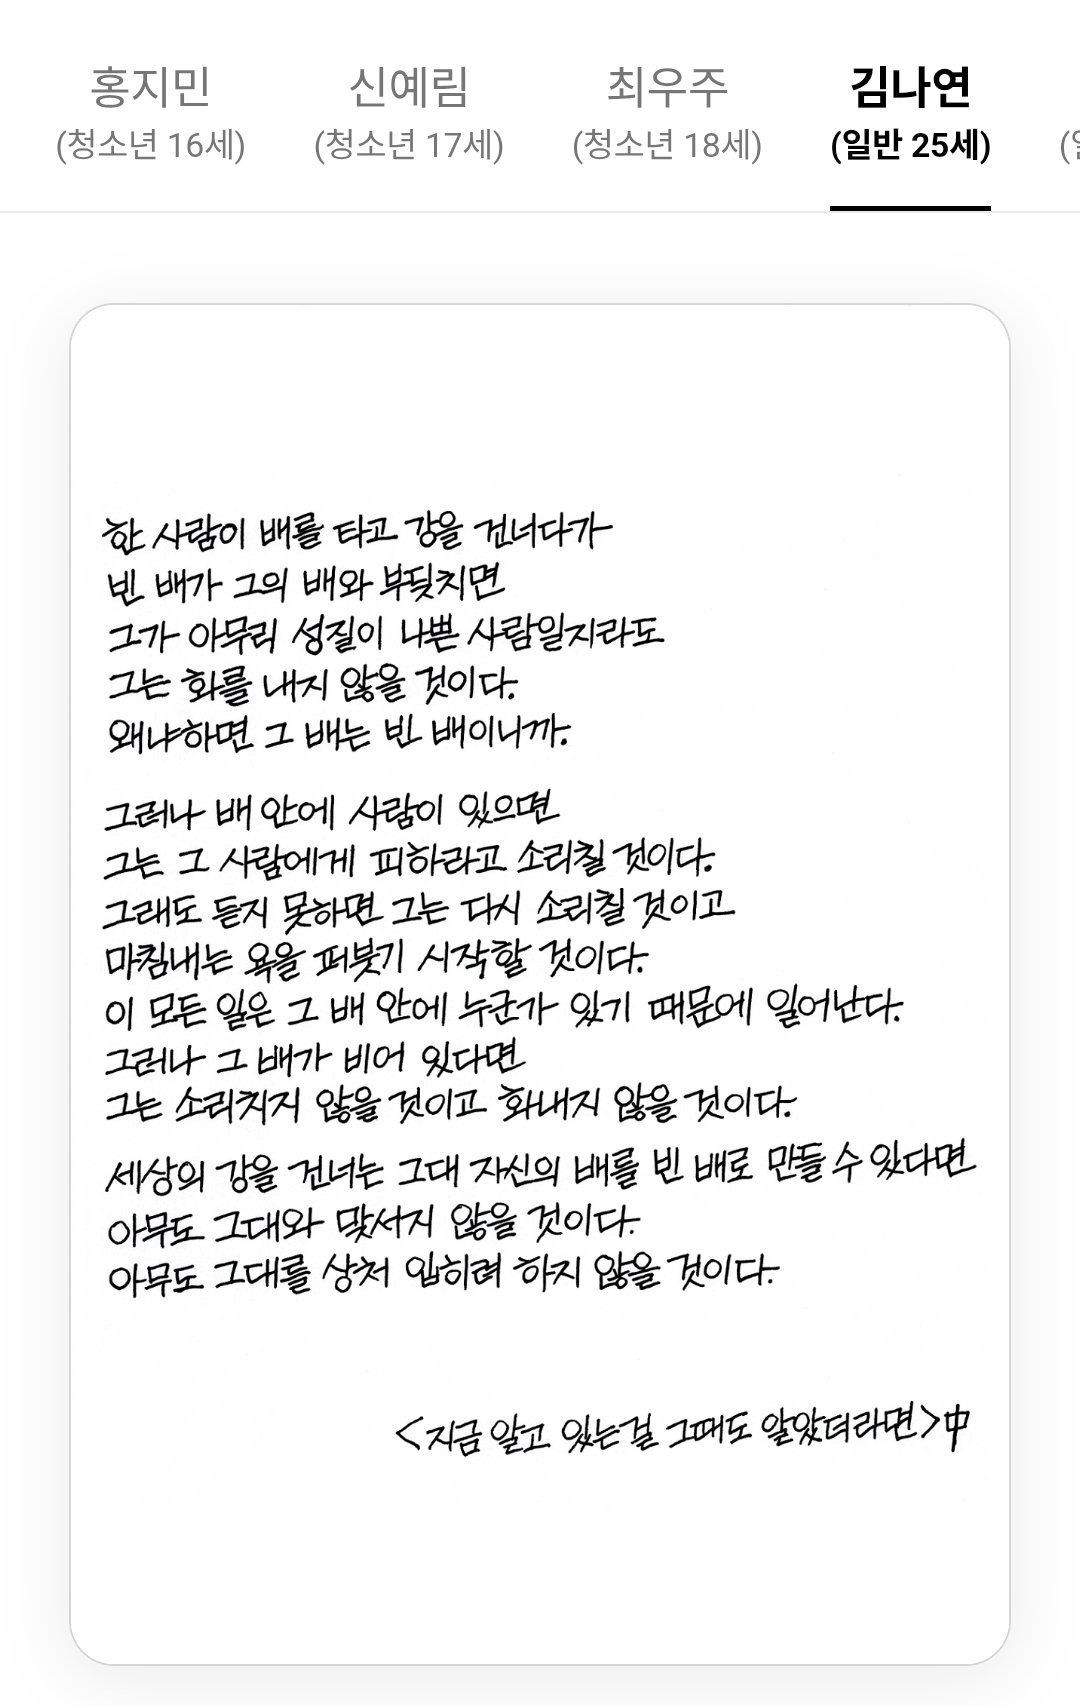 홍지민 신예림 최우주 김나연
(청소년 16세) (청소년 17세) (청소년 18세) (일반 25세) (
한 사람이 배를 타고 강을 건너다가
빈 배가 그의 배와 부딪치면
그가 아무리 성질이 나쁜 사람일지라도
그는 화를 내지 않을 것이다.
왜냐하면 그 배는 빈 배이니까.
그러나 배 안에 사람이 있으면
그는 그 사람에게 피하라고 소리칠 것이다.
그래도 듣지 못하면 그는 다시 소리칠 것이고
마침내는 욕을 퍼붓기 시작할 것이다.
이 모든 일은 그 배 안에 누군가 있기 때문에 일어난다.
그러나 그 배가 비어 있다면
그는 소리치지 않을 것이고 화내지 않을 것이다.
세상의 강을 건너는 그대 자신의 배를 빈 배로 만들 수 있다면
아무도 그대와 맞서지 않을 것이다.
아무도 그대를 상처 입히려 하지 않을 것이다.
<지금 알고 있는걸 그때도 알았더라면>中